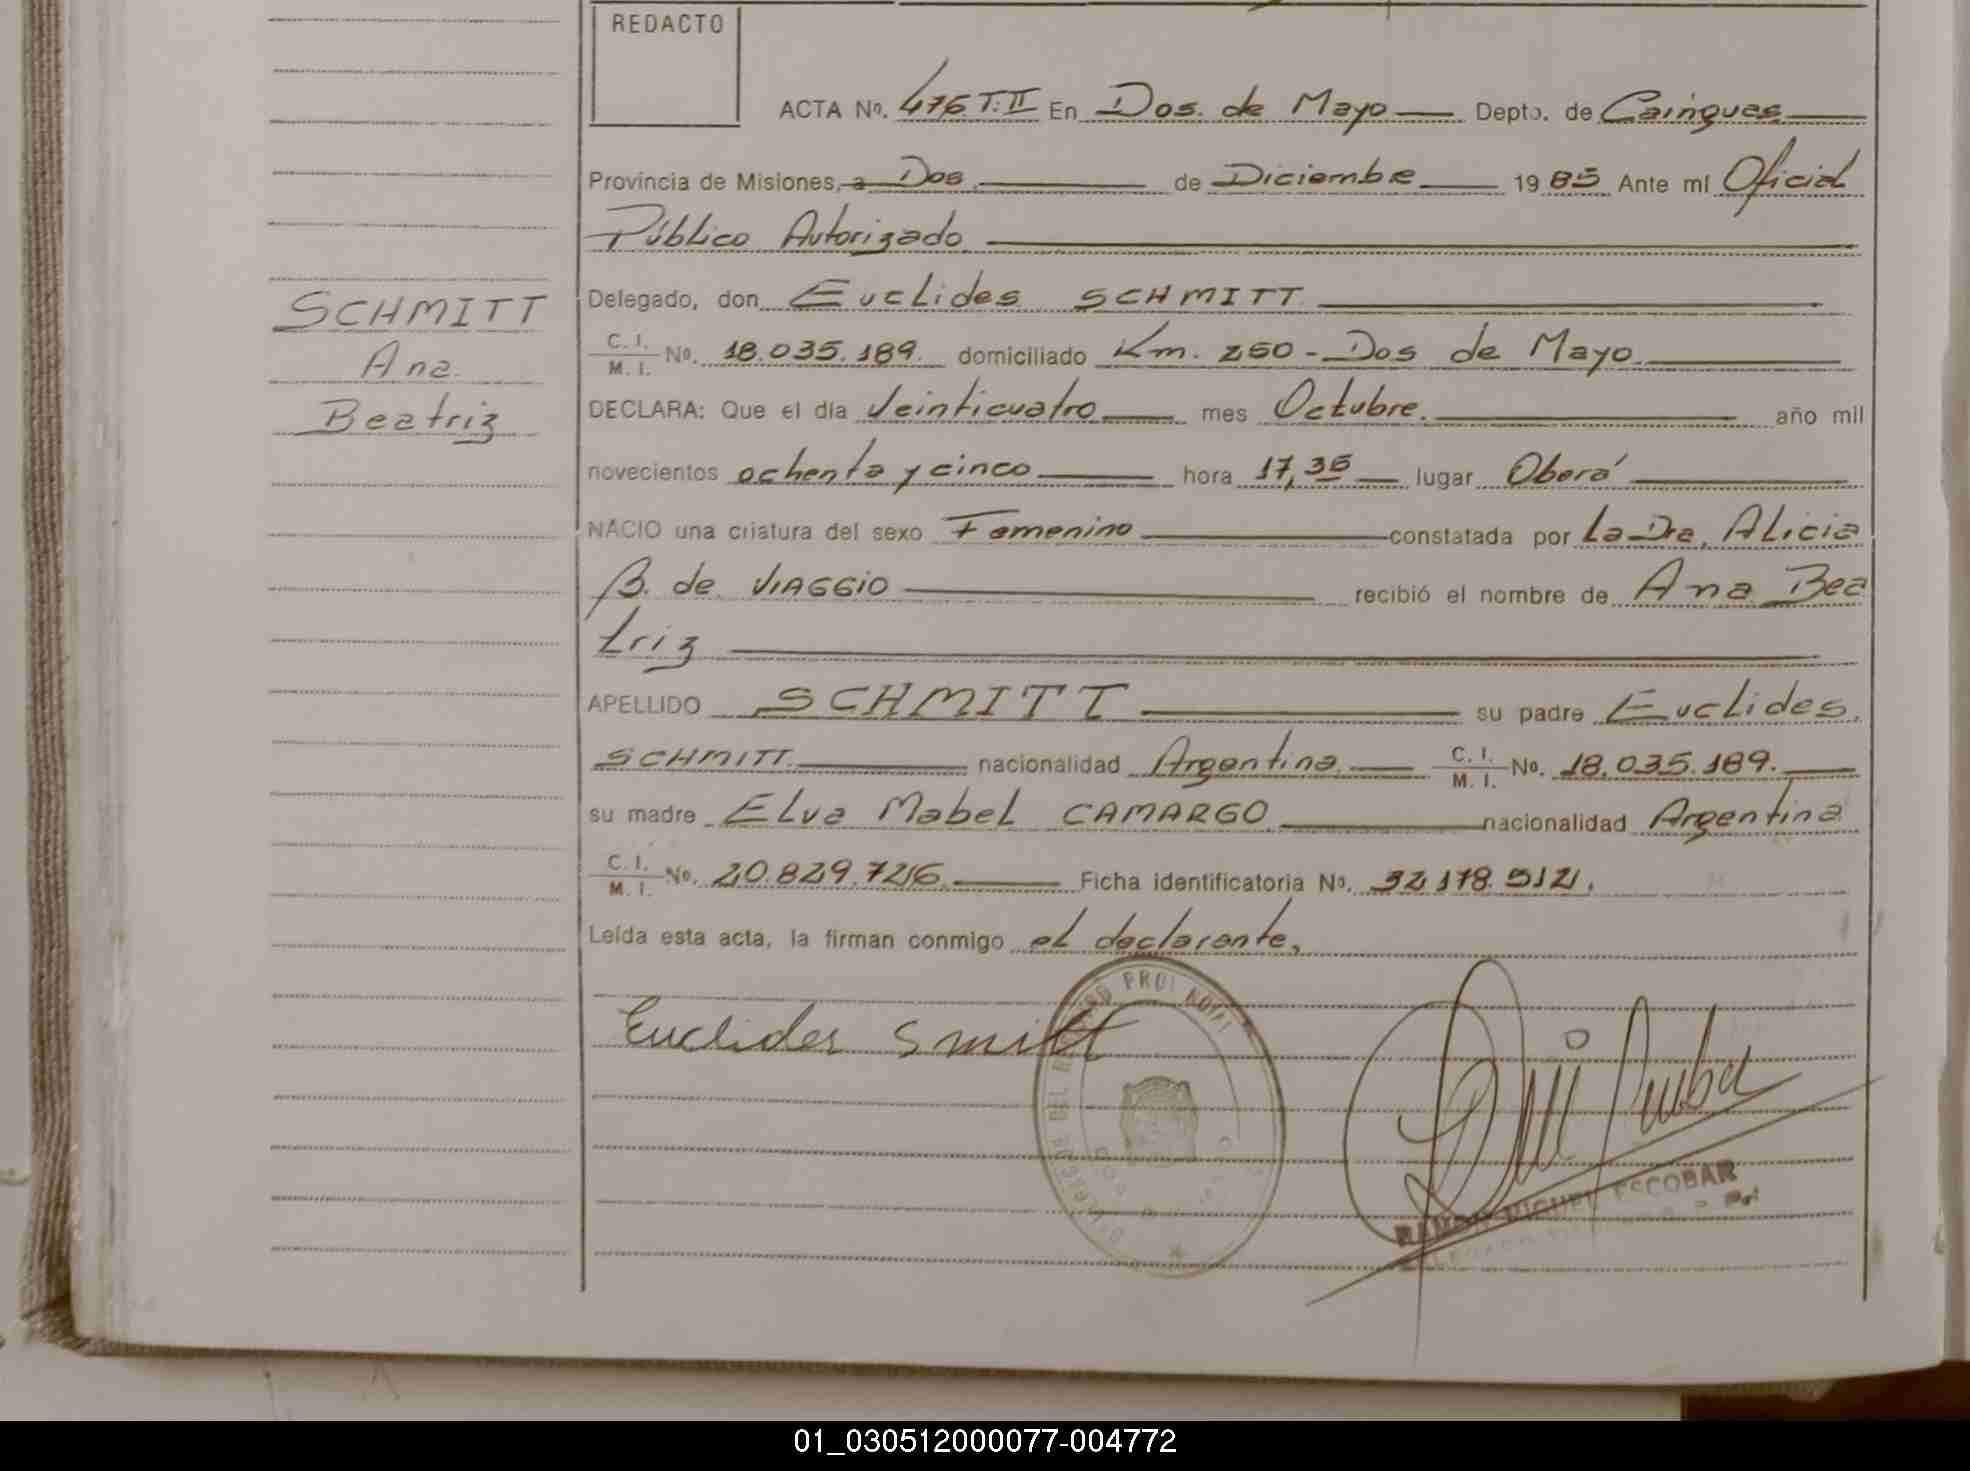 REDACTO
ACTA No. 476 T: II En Dos. de Mayo Depto. de Cainguas
Provincia de Misiones, a Dos de Diciembre 19 85 Ante mí Oficial
Público Autorizado
Delegado, don Euclides SCHMITT
C. I.
M. I. No. 18.035.189. domiciliado Km. 250 - Dos de Mayo.
DECLARA: Que el día Veinticuatro mes Octubre. año mil
novecientos ochenta y cinco hora 17,35 lugar Oberá
NACIO una criatura del sexo Femenino constatada por La Dra. Alicia
B. de VIAGGIO recibió el nombre de Ana Bea
triz
APELLIDO SCHMITT su padre Euclides.
SCHMITT. nacionalidad Argentina. C. I.
M. I. No. 18.035.189.
su madre Elva Mabel CAMARGO nacionalidad Argentina
C. I.
M. I. No. 20.829.726. Ficha identificatoria No. 32.178.512.
Leída esta acta, la firman conmigo el declarante,
Euclides Smitt
RAMON MIGUEL ESCOBAR
SCHMITT
Ana
Beatriz
01_030512000077-004772